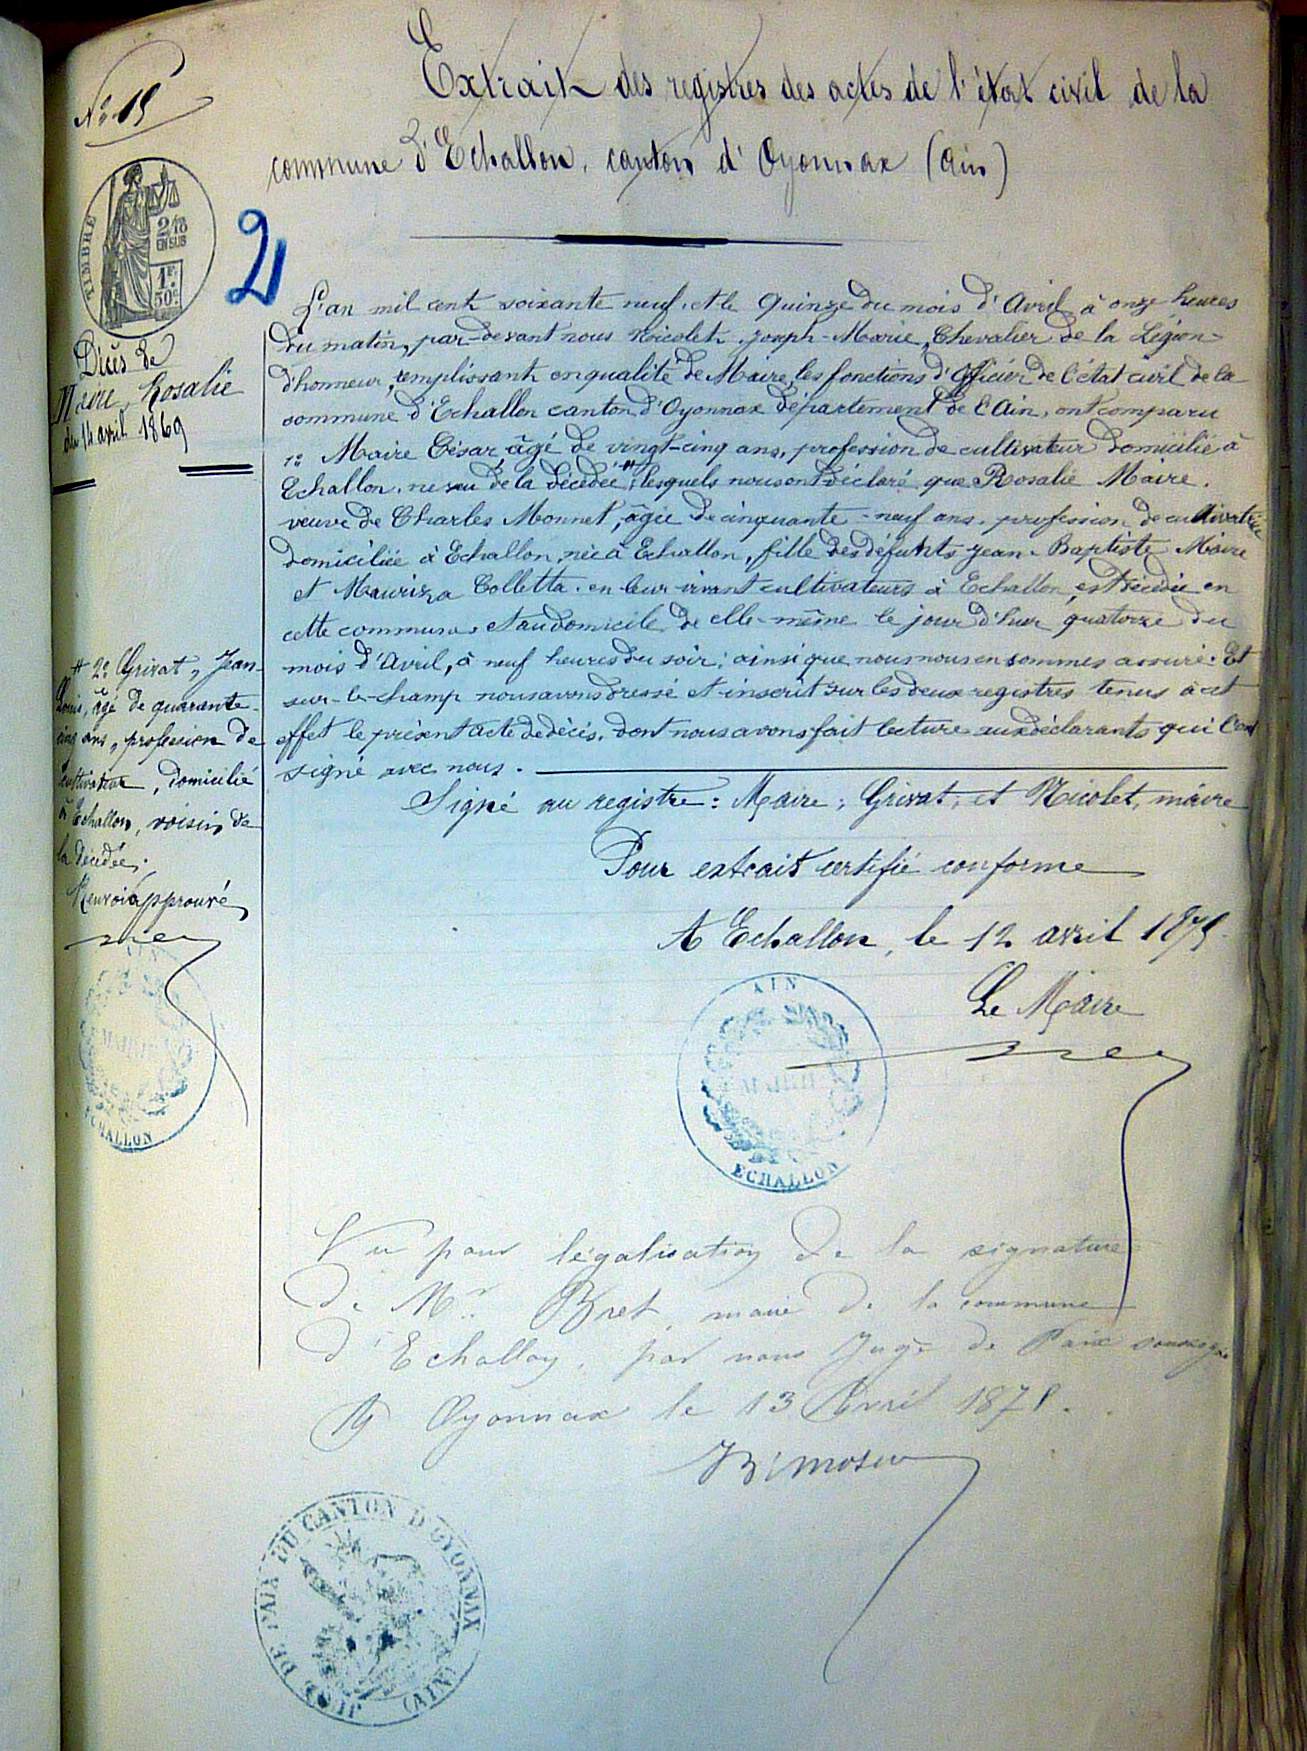 Nº 15
Extrait des registres des actes de l'état civil de la
commune d'Echallon, canton d'Oyonnax (Ain)
TIMBRE
2/10
EN SUS
1F.
50c.
2
Décès de
Maire, Rosalie
du 14 avril 1869
L'an mil cent soixante neuf, et le quinze du mois d'Avril à onze heures
du matin, par-devant nous Nicolet, Joseph-Marie, Chevalier de la Légion-
d'honneur, remplissant en qualité de Maire, les fonctions d'officier de l'état civil de la
commune d'Echallon canton d'Oyonnax département de l'Ain, ont comparu
1º Maire César, âgé de vingt-cinq ans, profession de cultivateur domicilié à
Echallon, neveu de la décédée #, lesquels nous ont déclaré que Rosalie Maire,
veuve de Charles Monnet, âgée de cinquante-neuf ans, profession de cultivatrice
domiciliée à Echallon, née à Echallon, fille des défunts Jean-Baptiste Maire
et Mauriza Colletta, en leur vivant cultivateurs à Echallon, est décédée en
cette commune, et au domicile de elle-même le jour d'hier quatorze du
mois d'Avril, à neuf heures du soir; ainsi que nous nous en sommes assuré. Et
sur-le-champ nous avons dressé et inscrit sur les deux registres tenus à cet
effet le présent acte de décès, dont nous avons fait lecture aux déclarants qui l'ont
signé avec nous.
# 2º Grivat, Jean-
Louis, âgé de quarante-
cinq ans, profession de
cultivateur, domicilié
à Echallon, voisin de
la décédée.
Renvoi approuvé
Signé au registre: Maire; Grivat, et Nicolet, maire
Pour extrait certifié conforme
A Echallon, le 12 avril 1875.
Le Maire
AIN
MAIRIE
ECHALLON
AIN
MAIRIE
ECHALLON
Vu pour légalisation de la signature
de Mr. Bret, maire de la commune
d'Echallon, par nous Juge de Paix soussigné
A Oyonnax le 13 Avril 1875.
JUGE DE PAIX DU CANTON D'OYONNAX
(AIN)